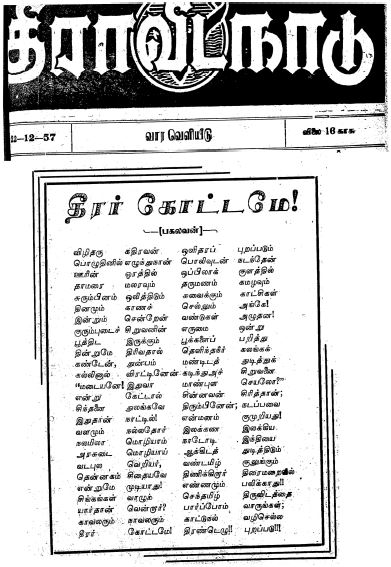 திராவிடநாடு
22-12-57 வார வெளியீடு விலை 16 காசு
தீரர் கோட்டமே!
[பகலவன்]
விழிதரு கதிரவன் ஒளிதரப் புறப்படும்
பொழுதினில் எழுந்துநான் பொலிவுடன் நடந்தேன்
ஊரின் ஓரத்தில் ஒப்பிலாக் குளத்தில்
தாமரை மலராவும் தருமணம் கமழவும்
சுரும்பினம் ஒலித்திடும் சுவைக்கும் காட்சிகள்
தினமும் காணச் செல்லும் அங்கே!
இன்றும் சென்றேன் வண்டுகள் அழுதன!
குரும்புடைச் சிறுவனின் எருமை ஒன்று
பூத்திட இருக்கும் பூக்களைப் பறித்து
தின்றுமே திரிவதால் தெளிந்தநீர் கலங்கக்
கண்டேன், துன்பம் மண்டிடத் துடித்துக்
கல்லினால் விரட்டினேன் கடிந்துஅச் சிறுவனை
"மடையனே! இதுவா மாண்புள செயலோ?"
என்று கேட்டால் சின்னவன் சிரித்தான்;
சிந்தனை அலங்கவே திரும்பினேன்; கடப்பவை
இதுதான் நாட்டில்! என்மனம் குமுறியது!
வளமும் நல்லதோர் இலக்கண இலக்கிய
நலமிலா மொழியாம் நாடோடி இந்தியை
அரசுடை மொழியாய் ஆக்கிடத் துடித்திடும்
வடபுல வெறியர், வண்டமிழ் குலுங்கும்
தென்னகம் சிதையவே திணிக்கிறார் திரைமறைவில்
என்றுமே முடியாது! எண்ணமும் பலிக்காது!!
சிங்கங்கள் வாழும் செந்தமிழ் திருவிடத்தை
யார்தான் வென்றார்? பார்ப்போம் வாருங்கள்;
காவலரும் நாவலரும் காட்டும் வழிசெல்ல
தீரர் கோட்டமே! திரண்டெழு!! புறப்படு!!!